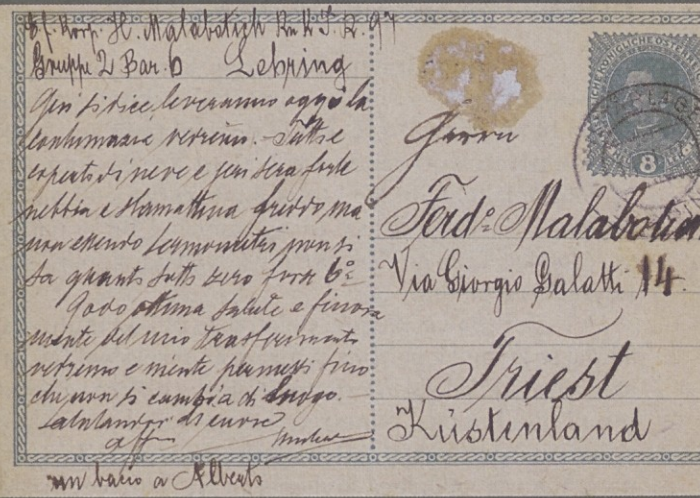 Korp. H. Malabotich K. u. K. I. R. 97
Gruppe 2 Bar. 6 Lebring
Qui si dice, leveranno oggi la
contumazia vedremo. Tutto è
coperto di neve e jeri sera forte
nebbia e stamattina freddo, ma
non essendo termometri non si
sa quanto sotto zero forse 6°
Godo ottima salute e finora
niente del mio trasferimento
vedremo e niente permessi fino
che non si cambia di luogo.
Salutandovi di cuore
aff
un bacio a Alberto
8
Herrn
Ferdo. Malabotich
Via Giorgio Galatti 14.
Triest
Küstenland